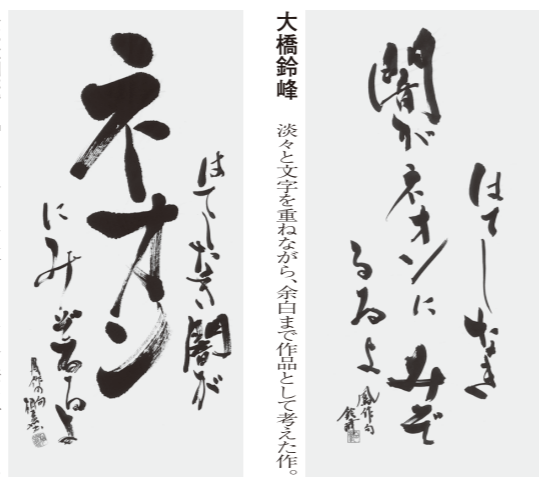 はてしなき
闇がネオンにみぞ
るるよ
鳳作句
鈴峰
大橋鈴峰　淡々と文字を重ねながら、余白まで作品として考えた作。
はてしなき闇が
ネオン
にみぞるるよ